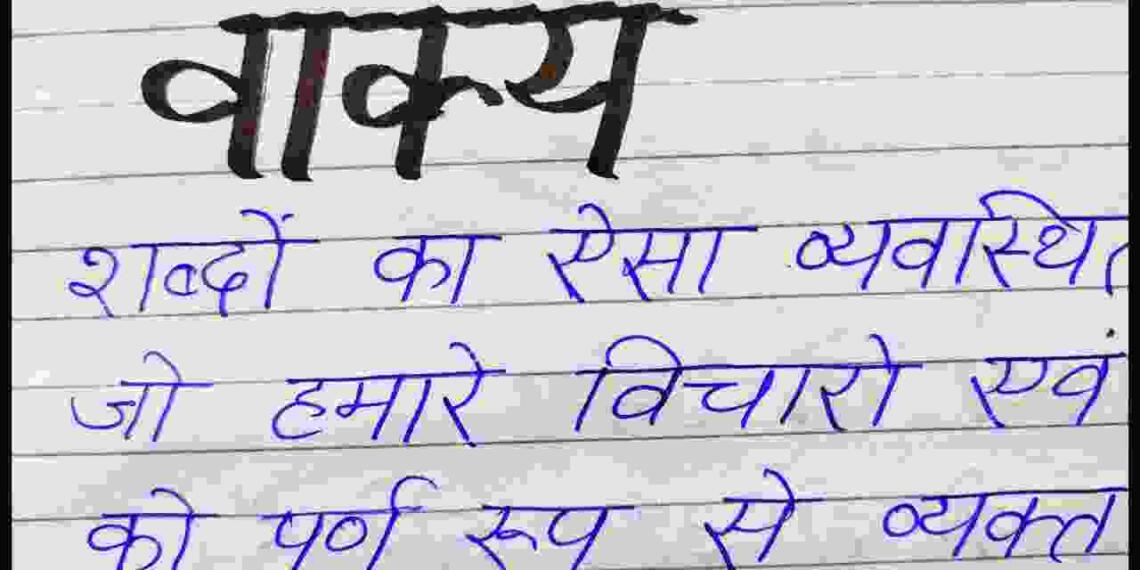 वाक्य
शब्दों का ऐसा व्यवस्थित
जो हमारे विचारो एवं
को पर्ण रूप से व्यक्त